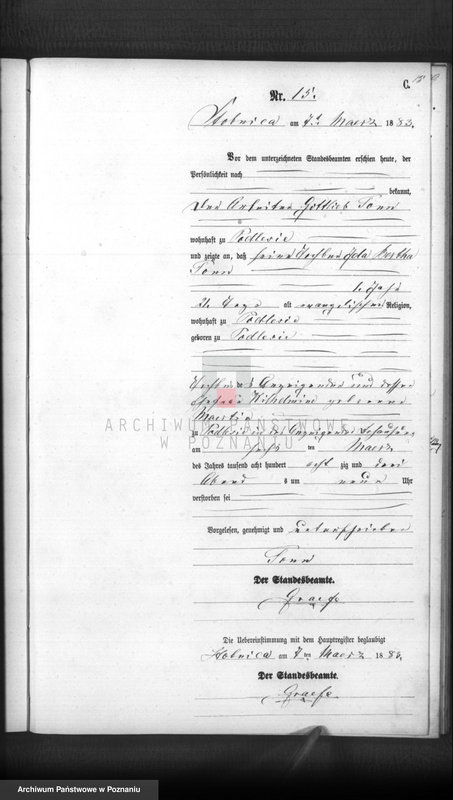 C.
Nr. 15.
Stobnica am 7t Maerz 1883.
Vor dem unterzeichneten Standesbeamten erschien heute, der
Persönlichkeit nach
bekannt,
Der Arbeiter Gottlieb Tonn
wohnhaft zu Podlesie
und zeigte an, daß seine Tochter Ida Bertha
Tonn
1. Jahr
21. Tage alt evangelischer Religion,
wohnhaft zu Podlesie
geboren zu Podlesie
Tochter des Anzeigenden und dessen
Ehefrau Wilhelmine geborene
zu Podlesie in des Anzeigenden Behausung
am sechs ten Maerz
des Jahres tausend acht hundert acht zig und drei
Abend s um neun Uhr
verstorben sei
Vorgelesen, genehmigt und unterschrieben
Tonn
Der Standesbeamte.
Graefe
Die Uebereinstimmung mit dem Hauptregister beglaubigt
Stobnica am 7 ten Maerz 1883.
Der Standesbeamte.
Graefe
ARCHIWUM PAŃSTWOWE
W POZNANIU
Archiwum Państwowe w Poznaniu